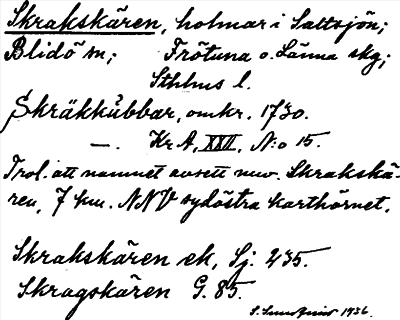 Skrakskären, holmar i Saltsjön;
Blidö sn; Frötuna o. Länna skg;
Sthlms l.
Skräkkubbar, omkr. 1730.
—. Kr A, XXII, N:o 15.
Trol. att namnet avsett nuv. Skrakskä-
ren, 7 km. NNV sydöstra karthörnet.
Skrakskären ek, Sj. 235.
Skragskären G. 85.
1936.